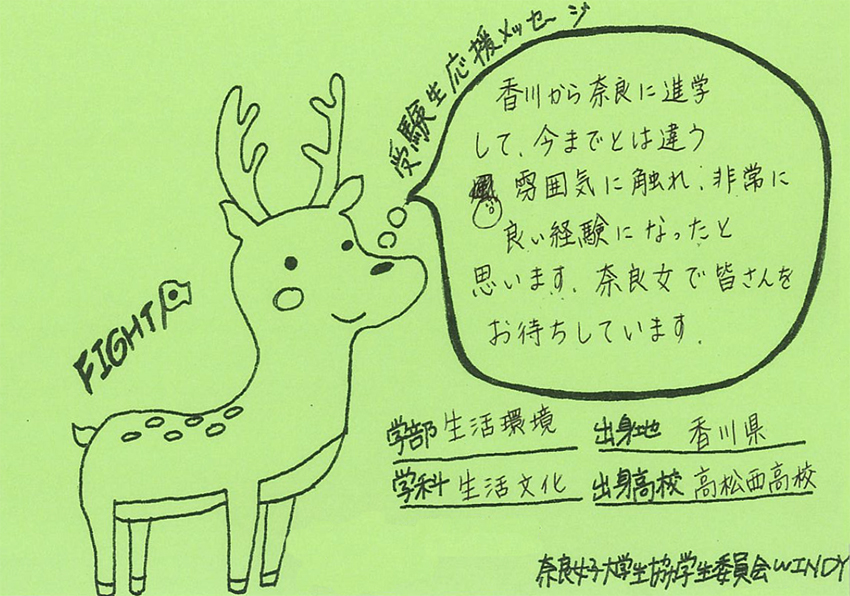 受験生応援メッセージ
香川から奈良に進学
して、今までとは違う
雰囲気に触れ、非常に
良い経験になったと
思います。奈良女で皆さんを
お待ちしています。
FIGHT!
学部 生活環境 出身地 香川県
学科 生活文化 出身高校 高松西高校
奈良女子大学生協学生委員会WINDY